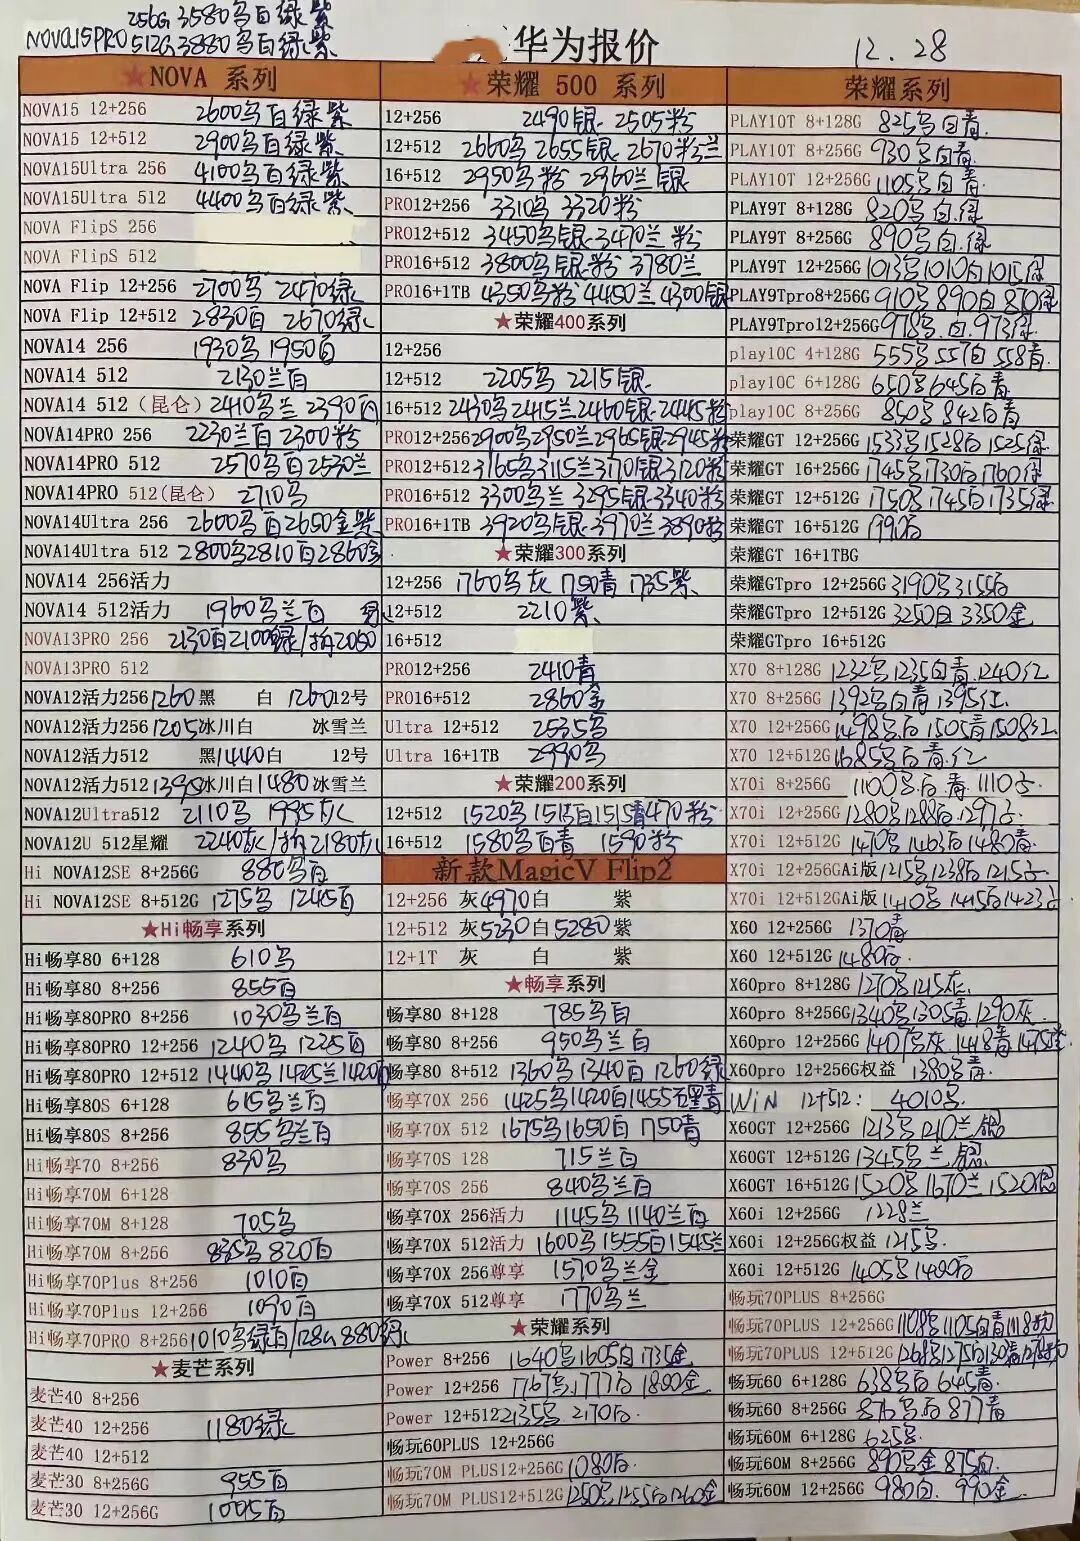 256G 3580乌白绿紫
NOVA15PRO 512G 3880乌白绿紫
华为报价
12.28
★NOVA 系列
NOVA15 12+256 2600乌白绿紫
NOVA15 12+512 2900乌白绿紫
NOVA15Ultra 256 4100乌白绿紫
NOVA15Ultra 512 4400乌白绿紫
NOVA FlipS 256
NOVA FlipS 512
NOVA Flip 12+256 2700乌 2470绿
NOVA Flip 12+512 2830白 2670绿
NOVA14 256 1930乌 1950白
NOVA14 512 2130兰白
NOVA14 512（昆仑）2410乌兰 2390白
NOVA14PRO 256 2230兰白 2300粉
NOVA14PRO 512 2570乌白 2530兰
NOVA14PRO 512(昆仑) 2710乌
NOVA14Ultra 256 2600乌白 2650金紫
NOVA14Ultra 512 2800乌 2810白 2860金
NOVA14 256活力
NOVA14 512活力 1960乌兰白
NOVA13PRO 256 2130白 2100绿/拆2050
NOVA13PRO 512
NOVA12活力256 1260黑 白 1260 12号
NOVA12活力256 1205冰川白 冰雪兰
NOVA12活力512 黑1440白 12号
NOVA12活力512 1395冰川白 1480冰雪兰
NOVA12Ultra512 2110乌 1995灰
NOVA12U 512星耀 2240灰/拆2180灰
Hi NOVA12SE 8+256G 880乌白
Hi NOVA12SE 8+512G 1275乌 1245白
★Hi畅享系列
Hi畅享80 6+128 610乌
Hi畅享80 8+256 855白
Hi畅享80PRO 8+256 1030乌兰白
Hi畅享80PRO 12+256 1240乌 1225白
Hi畅享80PRO 12+512 1440乌 1425兰 1420白
Hi畅享80S 6+128 615乌兰白
Hi畅享80S 8+256 855乌兰白
Hi畅享70 8+256 830乌
Hi畅享70M 6+128
Hi畅享70M 8+128 705乌
Hi畅享70M 8+256 835乌 820白
Hi畅享70Plus 8+256 1010白
Hi畅享70Plus 12+256 1090白
Hi畅享70PRO 8+256 1010乌绿白/128G 880绿
★麦芒系列
麦芒40 8+256
麦芒40 12+256 1180绿
麦芒40 12+512
麦芒30 8+256G 955白
麦芒30 12+256G 1095白
★荣耀 500 系列
12+256 2490银 2505粉
12+512 2660乌 2655银 2670粉兰
16+512 2950乌粉 2960兰银
PRO12+256 3310乌 3320粉
PRO12+512 3450乌银 3470兰粉
PRO16+512 3800乌银粉 3780兰
PRO16+1TB 4350乌粉 4450兰 4300银
★荣耀400系列
12+256
12+512 2205乌 2215银
16+512 2430乌 2415兰 2460银 2445粉
PRO12+256 2900乌 2950兰 2965银 2945粉
PRO12+512 3165乌 3115兰 3170银 3120粉
PRO16+512 3300乌兰 3295银 3340粉
PRO16+1TB 3920乌银 3970兰 3890粉
★荣耀300系列
12+256 1760乌灰 1750青 1735紫
12+512 2210紫
16+512
PRO12+256 2410青
PRO16+512 2860金
Ultra 12+512 2535乌
Ultra 16+1TB 2990乌
★荣耀200系列
12+512 1520乌 1515白 1515青 1470粉
16+512 1580乌白青 1590粉
新款MagicV Flip2
12+256 灰4970白 紫
12+512 灰5230白 5280紫
12+1T 灰 白 紫
★畅享系列
畅享80 8+128 785乌白
畅享80 8+256 950乌兰白
畅享80 8+512 1360乌 1340白 1260绿
畅享70X 256 1425乌 1420白 1455墨青
畅享70X 512 1675乌 1650白 1750青
畅享70S 128 715兰白
畅享70S 256 840乌兰白
畅享70X 256活力 1145乌 1140兰白
畅享70X 512活力 1600乌 1555白 1545兰
畅享70X 256尊享 1570乌兰金
畅享70X 512尊享 1770乌兰
★荣耀系列
Power 8+256 1640乌 1605白 1735金
Power 12+256 1767乌 1777白 1800金
Power 12+512 2135乌 2170白
畅玩60PLUS 12+256G
畅玩70M PLUS12+256G 1080白
畅玩70M PLUS12+512G 1250乌 1255白 1260金
荣耀系列
PLAY10T 8+128G 825乌白青
PLAY10T 8+256G 930乌白青
PLAY10T 12+256G 1105乌白青
PLAY9T 8+128G 820乌白绿
PLAY9T 8+256G 890乌白绿
PLAY9T 12+256G 1013乌 1010白 1015绿
PLAY9Tpro8+256G 910乌 890白 870绿
PLAY9Tpro12+256G 978乌白 973绿
play10C 4+128G 555乌 557白 558青
play10C 6+128G 650乌 645白青
play10C 8+256G 850乌 842白青
荣耀GT 12+256G 1533乌 1528白 1525绿
荣耀GT 16+256G 1745乌 1730白 1760绿
荣耀GT 12+512G 1750乌 1745白 1735绿
荣耀GT 16+512G 1990白
荣耀GT 16+1TBG
荣耀GTpro 12+256G 3190乌 3155白
荣耀GTpro 12+512G 3250白 3350金
荣耀GTpro 16+512G
X70 8+128G 1232乌 1235白青 1240红
X70 8+256G 1392乌白青 1395红
X70 12+256G 1498乌白 1505青 1508红
X70 12+512G 1685乌白青红
X70i 8+256G 1100乌白青 1110
X70i 12+256G 1280乌 1288白 1297
X70i 12+512G 1470乌 1463白 1480青
X70i 12+256GAi版 1215乌 1238白 1215
X70i 12+512GAi版 1410乌 1415白 1423
X60 12+256G 1370青
X60 12+512G 1480白
X60pro 8+128G 1270乌 1215灰
X60pro 8+256G 1340乌 1305青 1290灰
X60pro 12+256G 1407乌灰 1418青 1475
X60pro 12+256G权益 1380乌青
WiN 12+512: 4010乌
X60GT 12+256G 1213乌 1210兰银
X60GT 12+512G 1345乌兰银
X60GT 16+512G 1520乌 1670兰 1520银
X60i 12+256G 1228兰
X60i 12+256G权益 1215乌
X60i 12+512G 1405乌 1400白
畅玩70PLUS 8+256G
畅玩70PLUS 12+256G 1108乌 1105白青
畅玩70PLUS 12+512G 1268乌 1275白
畅玩60 6+128G 638乌白 645青
畅玩60 8+256G 876乌白 877青
畅玩60M 6+128G 625乌
畅玩60M 8+256G 890乌金 875白
畅玩60M 12+256G 980白 990金